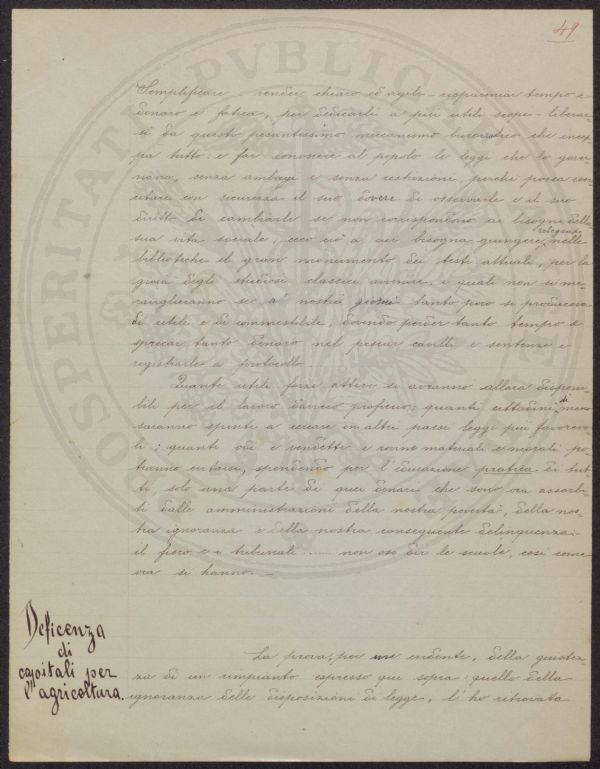 49
Semplificare - render chiaro ed agile - risparmiar tempo e
denaro e fatica, per dedicarli a più utili scopi - liberar
si da questo pesantissimo meccanismo burocratico che
tutto: e far conoscere al popolo le leggi che lo gover
nano, senza ambagi e senza restrizioni, perchè possa con
siderare con sicurezza il suo dovere di osservarle e il suo
diritto di cambiarle se non corrispondono ai bisogni della
sua vita sociale, ecco ciò a cui bisogna giungere, relegando nelle
biblioteche il gran monumento dei testi attuali, per la
gioia degli studiosi classici ammir, i quali non si me
raviglieranno se a nostri giorni tanto poco si produceva
di utile e di commestibile, dovendo perder tanto tempo e
sprecar tanto denaro nel pescar cavilli e sentenze e
registrarle a protocollo.
Quante utili forze attive si avranno allora disponi
bili per il lavoro davvero proficuo; quanti cittadini di meno
saranno spinti a cercare in altri paesi leggi più favorevo
li; quanti odi e vendette e rovine materiali e morali po
tranno evitarsi, spendendo per l'educazione pratica di tut
ti solo una parte di quei denari che sono ora assorbi
ti dalle amministrazioni della nostra povertà, della nos
tra ignoranza e della nostra conseguente delinquenza:
il fisco e i tribunali ..... non oso dir le scuole, così come
ora si hanno. -
Deficenza
di
capitali per
l'agricoltura.
La prova, per me evidente, della giustez
za di un rimpianto espresso qui sopra: quello della
ignoranza delle disposizioni di legge, l'ho ritrovata